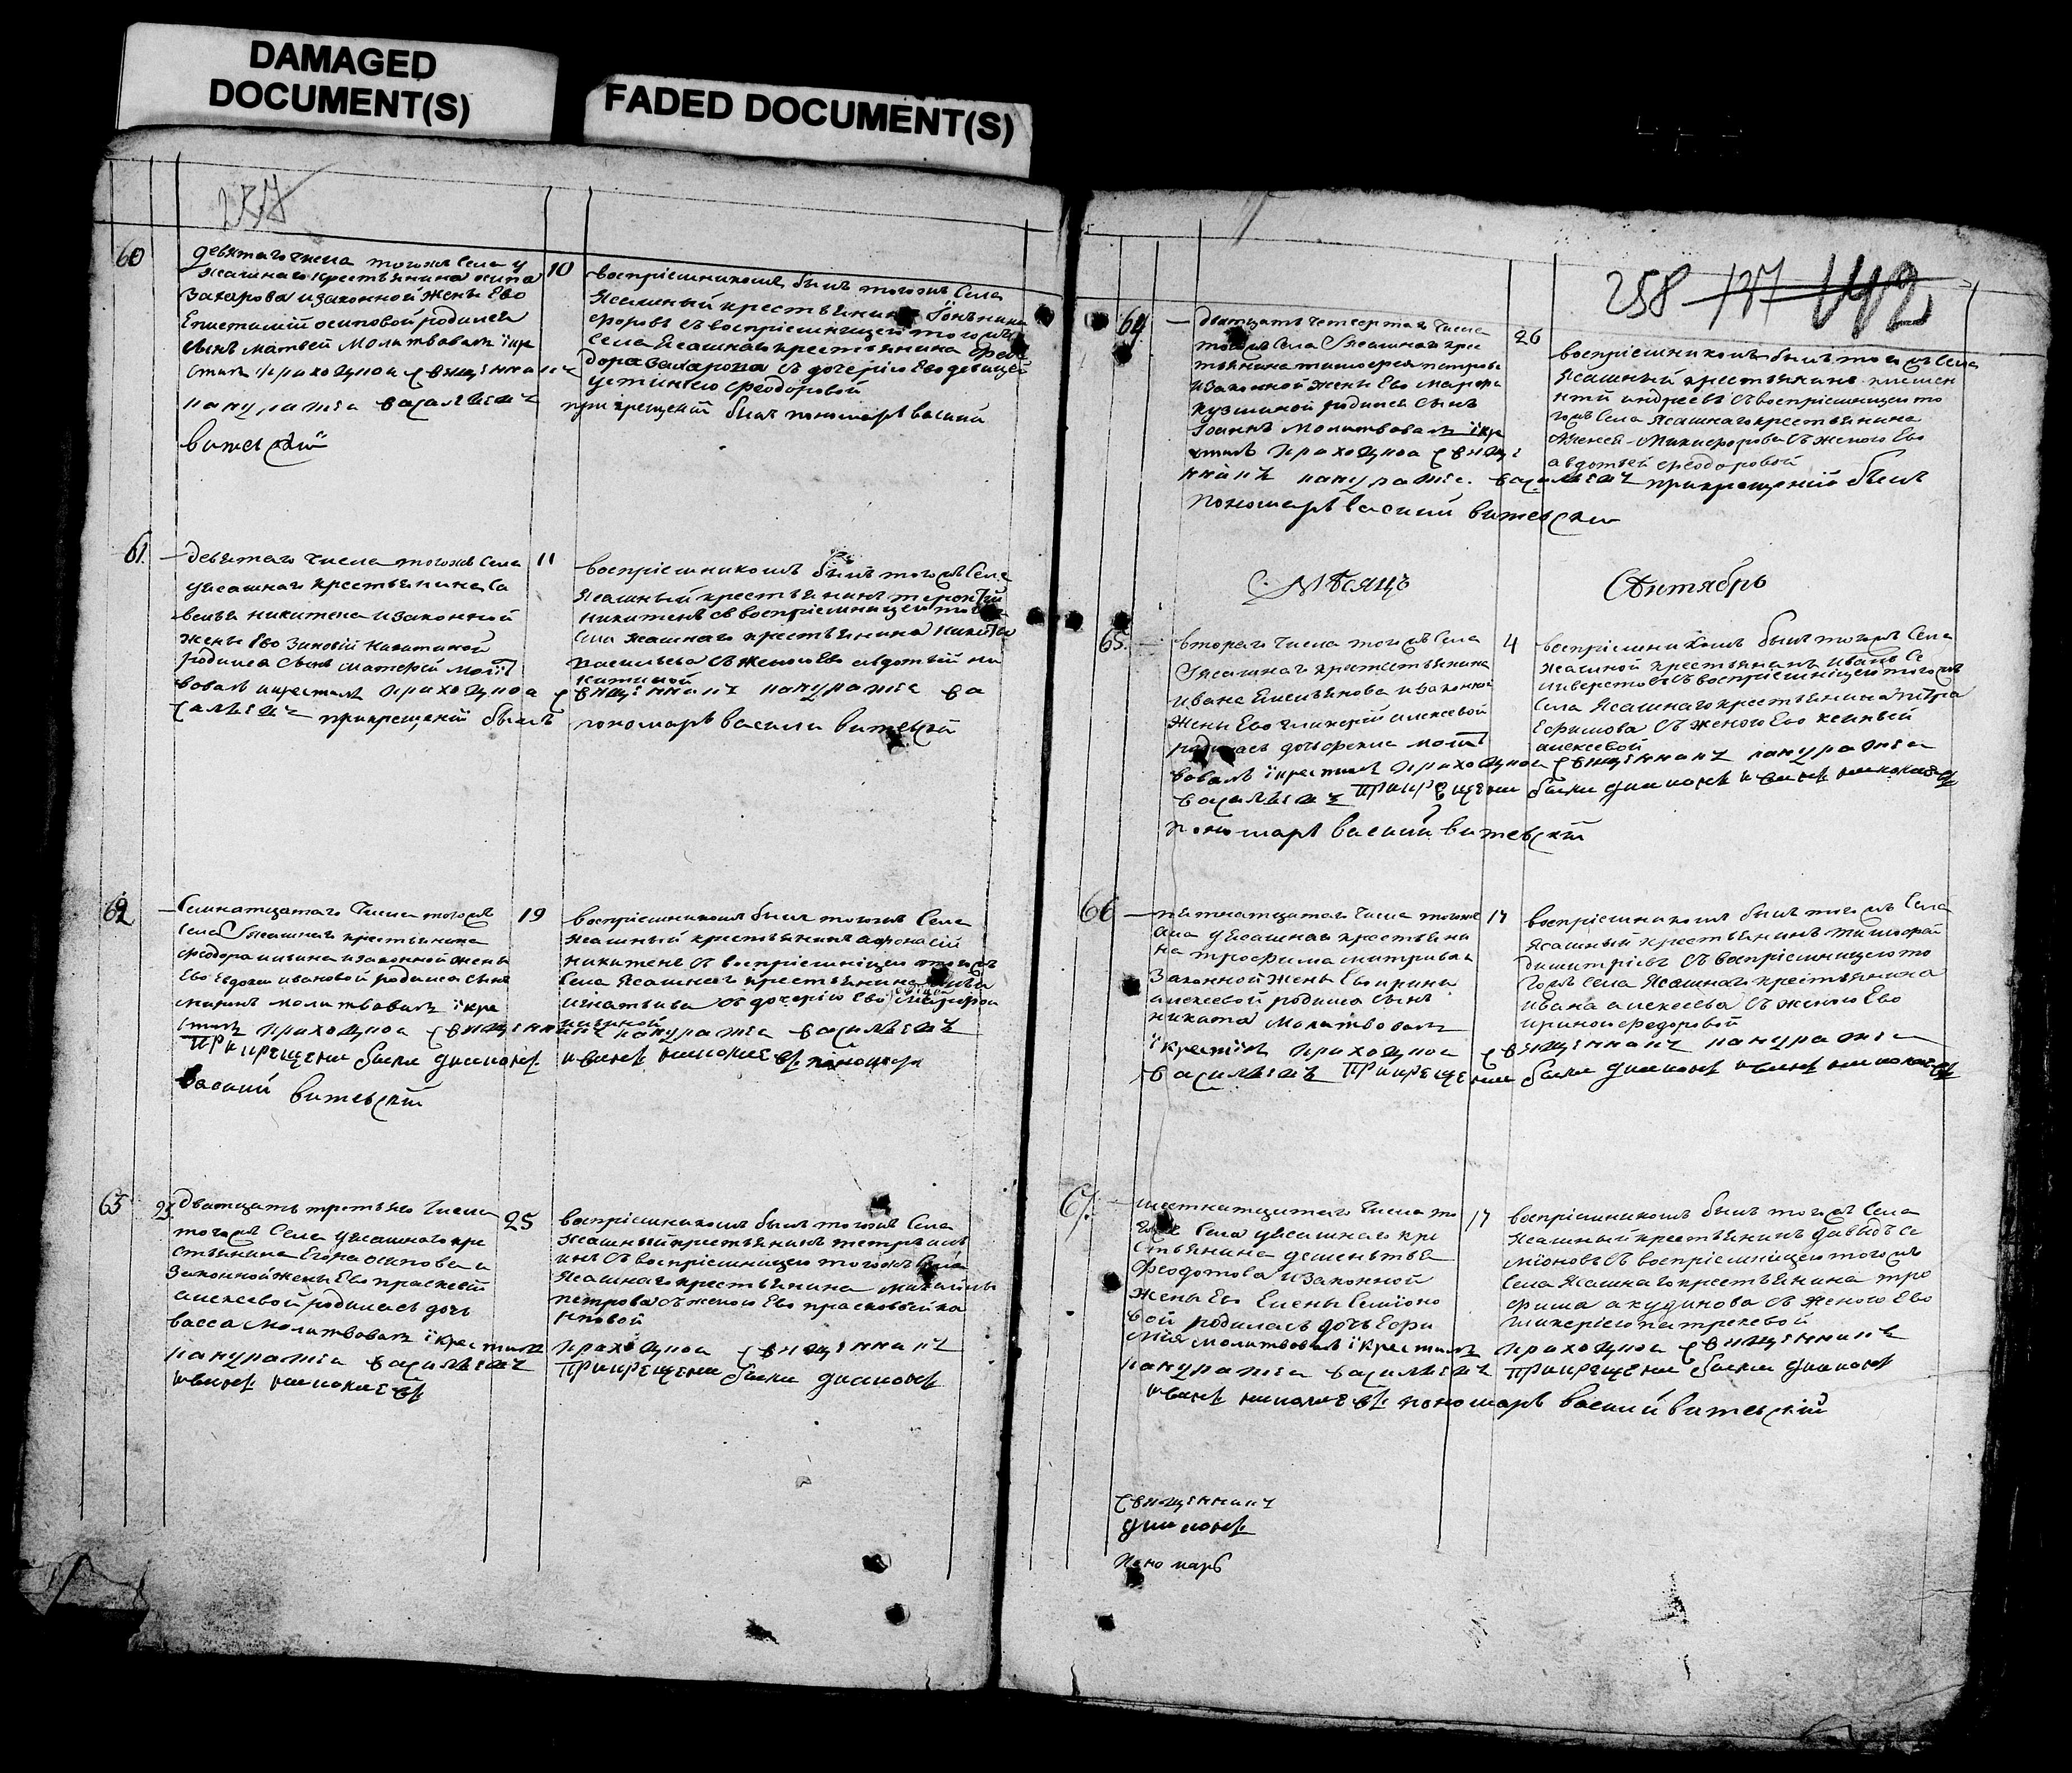 DAMAGED
DOCUMENT(S)
FADED DOCUMENT(S)
257
60
девятаго числа тогожъ села у
ясашнаго крестьянина осипа
Захарова изаконной жены Ево
Епистимiи осиповой родился
сынъ матвей молитвовалъ iкре
стилъ приходцкой священникъ
панкратей васильевъ
витевский
10
воспрiемникомъ былъ тогожъ села
ясашный крестьянинъ
форовъ съ воспрiемницей тогожъ
села ясашнаго крестьянина Фео
дора Захарова съ дочерiю Ево девицей
устиньею Феодоровой
прикрещенiи былъ пономарь василий
61
девятаго числа тогожъ села
уясашнаго крестьянина са
велья никитина изаконной
жены Ево Зиновiи Никитиной
родился сынъ матфей моли
вовалъ икрестилъ приходцкой
васильевъ прикрещенiи былъ
11
воспрiемникомъ былъ тогожъ села
ясашный крестьянинъ терентей
никитинъ съ воспрiемницей тогожъ
села ясашнаго крестьянина никиты
васильева съ женою Ево авдотьей ни
китиной
священникъ панкратей ва
пономарь василий витевский
62
Семнатцатаго числа тогожъ
села уясашнаго крестьянина
Феодора изаконной жены
Ево Евдокеи ивановой родился сынъ
молитвовалъ iкре
стилъ приходцкой священникъ панкратей васильевъ
прикрещени были диаконъ иванъ пономарь
василий витевский
19
воспрiемникомъ былъ тогожъ села
ясашный крестьянинъ афонасей
никитинъ съ воспрiемницею тогожъ
села ясашнаго крестьянина
игнатьева съ дочерiю Ево
63
23
Дватцать третьяго числа
тогожъ села уясашнаго кре
стьянина Егора осипова и
Законной жены Ево праскевiи
алексевой родилась дочь
васса молитвовалъ iкрестилъ
панкратей васильевъ
иванъ
25
воспрiемникомъ былъ тогожъ села
ясашный крестьянинъ петръ
инъ съ воспрiемницею тогожъ села
ясашнаго крестьянина михайлы
петрова съ женою Ево прасковьей ка
рповой
приходцкой священникъ
прикрещени были диаконъ
258 137 142
64
дватцать четвертаго числа
тогожъ села уясашнаго кре
стьянина тимофея петрова
изаконной жены Ево марфы
кузминой родился сынъ
Iоаннъ молитвовалъ iкре
стилъ приходцкой свяще
нникъ панкратей васильевъ прикрещенiи былъ
пономарь василий витевский
26
воспрiемникомъ былъ тогожъ села
ясашный крестьянинъ климен
нтiй андреевъ съ воспрiемницею то
гожъ села ясашнаго крестьянина
Алексея Никифорова съ женою Ево
авдотьей Феодоровой
Месяцъ Сентябрь
65
втораго числа тогожъ села
уясашнаго крестьянина
ивана Емельянова изаконной
жены Ево гликерiи алексевой
родилась дочь молит
вовалъ iкрестилъ приходцкой священникъ панкратей
васильевъ прикрещени были диаконъ иванъ
пономарь василий витевский
4
воспрiемникомъ былъ тогожъ села
ясашной крестьянинъ иванъ се
ливерстовъ съ воспрiемницею тогожъ
села ясашнаго крестьянина петра
Ефимова съ женою Ево ксеньей
алексевой
66
пятнатцатаго числа тогожъ
села уясашнаго крестьяни
на трофима митриева и
Законной жены Ево ирины
алексевой родился сынъ
никита молитвовалъ
iкрестилъ приходцкой священникъ панкратей
васильевъ прикрещени были диаконъ иванъ
17
воспрiемникомъ былъ тогожъ села
ясашный крестьянинъ тимофей
димитрiевъ съ воспрiемницею то
гожъ села ясашнаго крестьянина
ивана алексеева съ женою Ево
ириною федоровой
67
шестнатцатаго числа то
гожъ села уясашнаго кре
стьянина дементья
Феодотова изаконной
жены Ево Елены Семионо
вой родилась дочь Ефи
мия молитвовалъ iкрестилъ приходцкой священникъ
панкратей васильевъ прикрещени были диаконъ
иванъ пономарь василий витевский
17
воспрiемникомъ былъ тогожъ села
ясашный крестьянинъ давыдъ се
мiоновъ съ воспрiемницею тогожъ
села ясашнаго крестьянина тро
фима акудинова съ женою Ево
гликерiею патрекевой
священникъ
диаконъ
пономарь